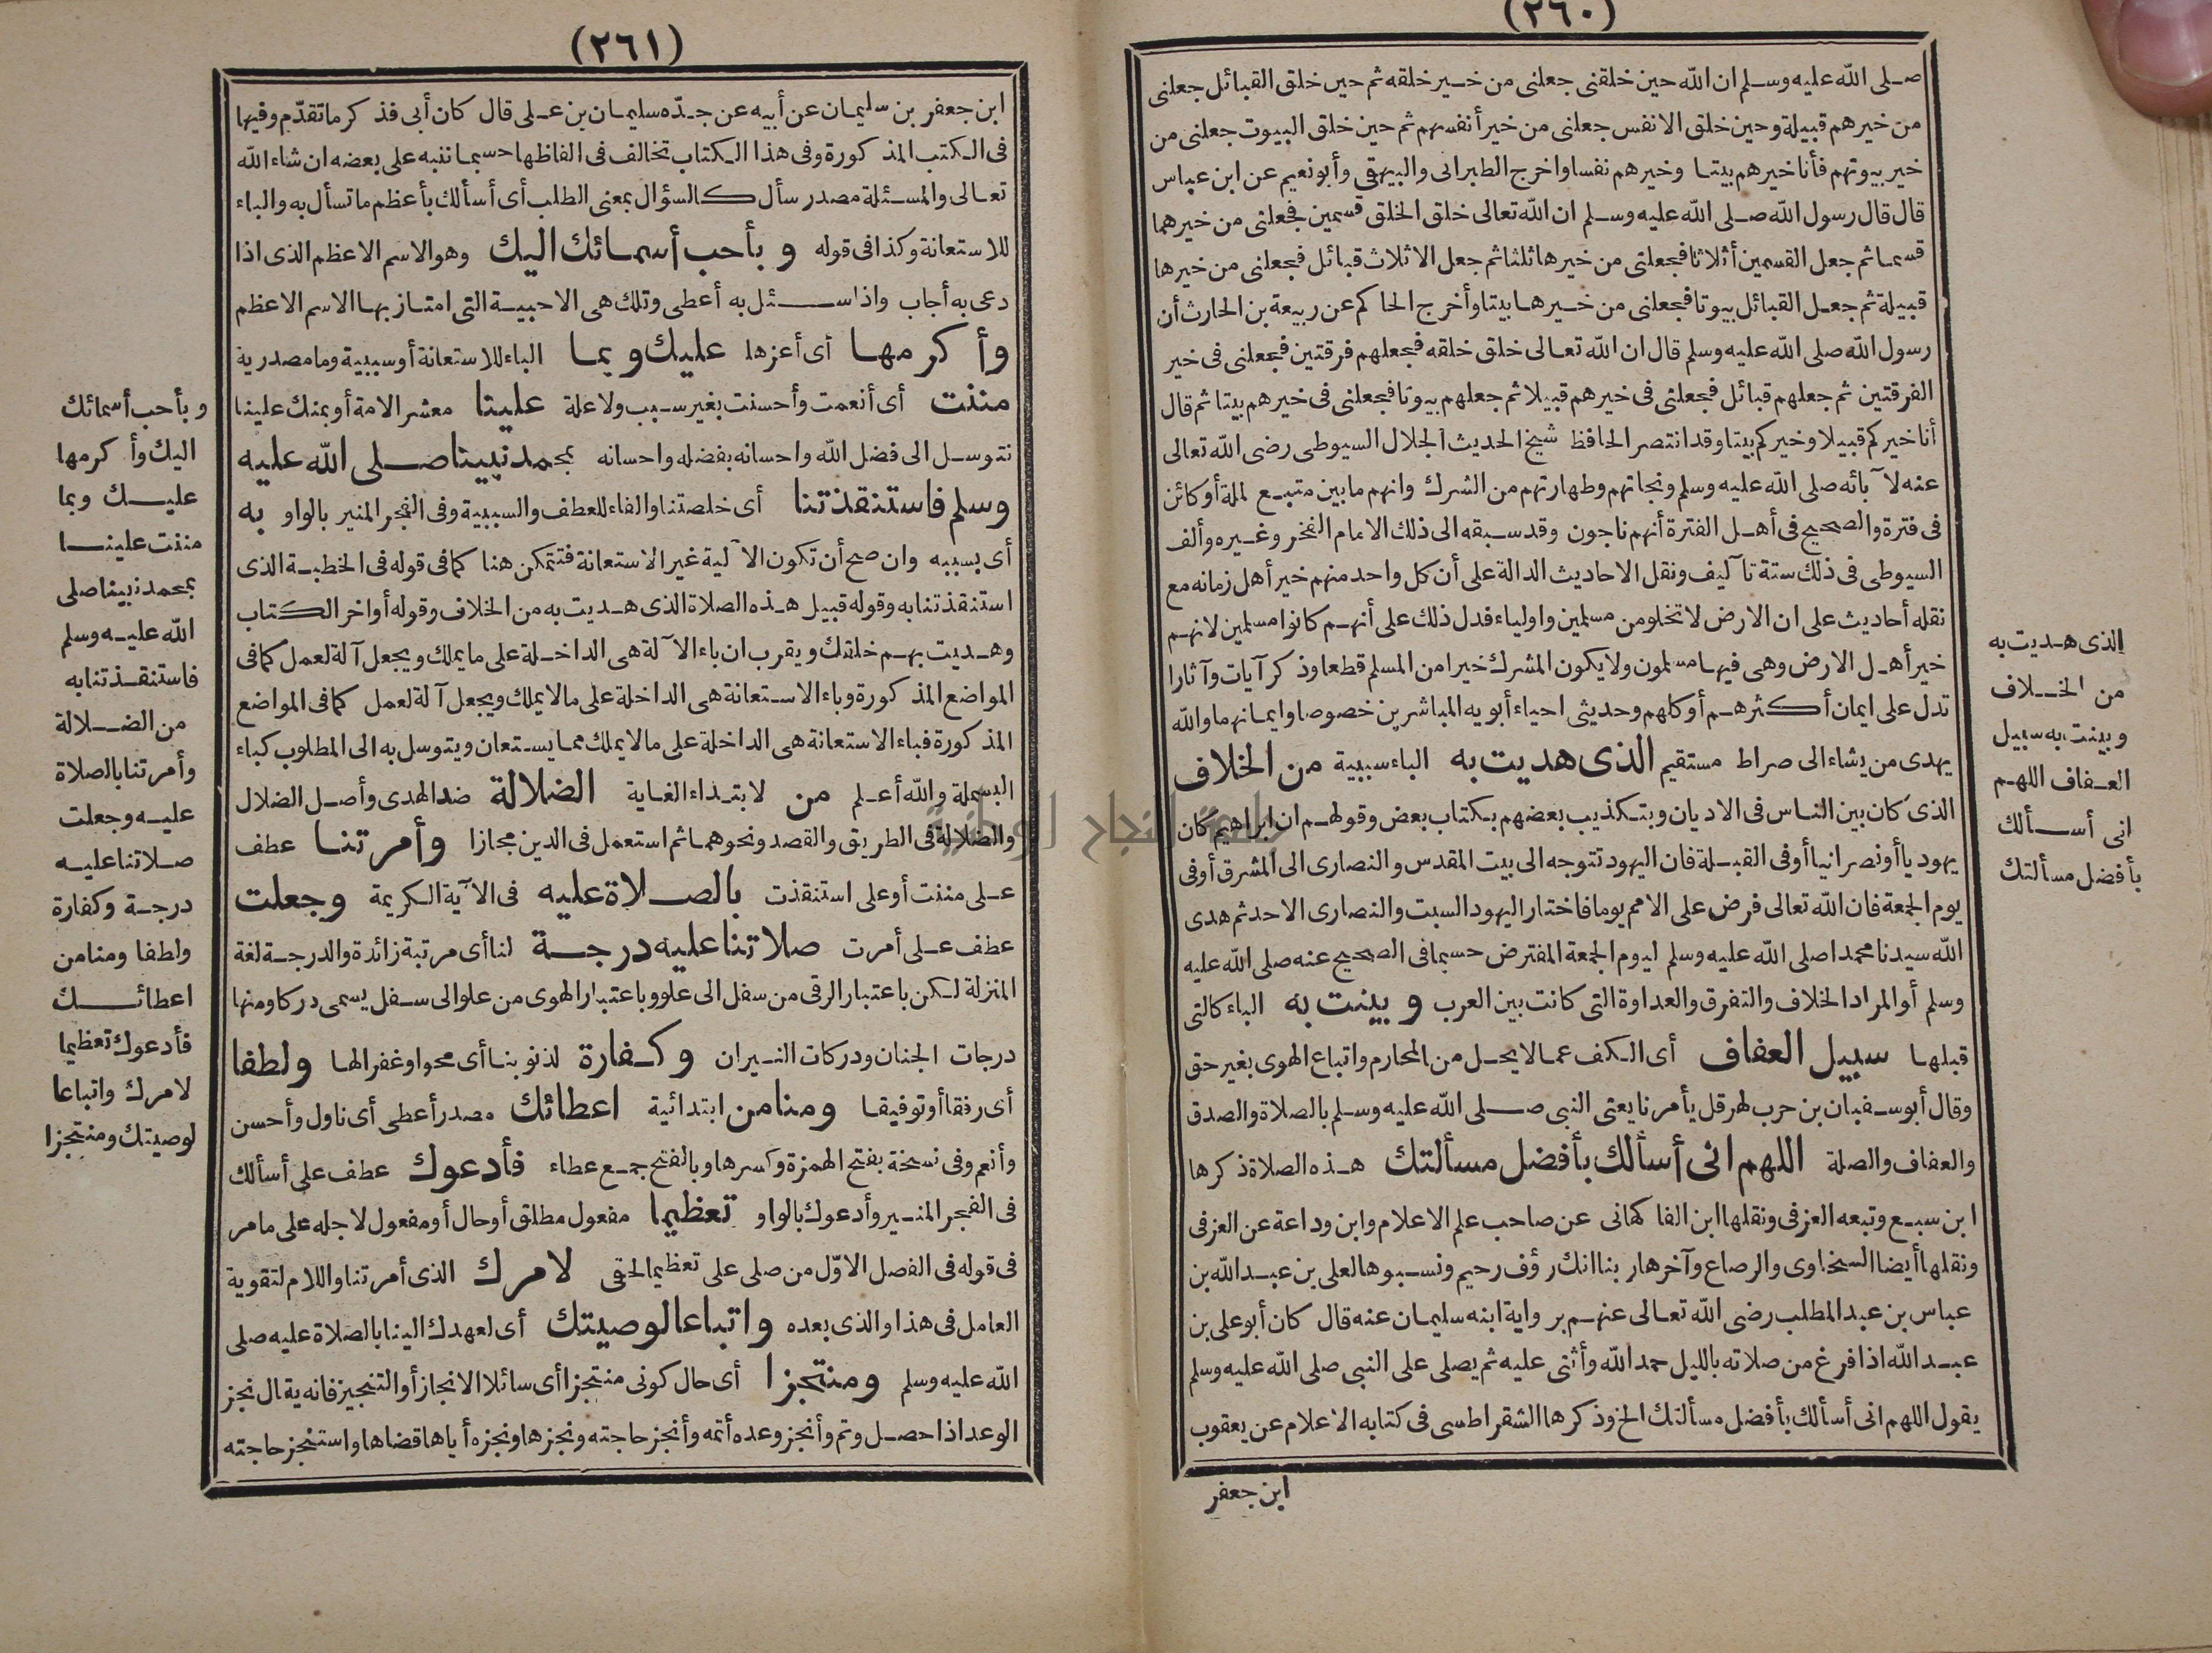 (٢٦٠)
صلى الله عليه وسلم ان الله حين خلقنى جعلنى من خير خلقه ثم حين خلق القبائل جعلنى
من خيرهم قبيلة وحين خلق الانفس جعلنى من خير أنفسهم ثم حين خلق البيوت جعلنى من
خير بيوتهم فأنا خيرهم بيتا وخيرهم نفسا واخرج الطبرانى والبيهقى وأبو نعيم عن ابن عباس
قال قال رسول الله صلى الله عليه وسلم ان الله تعالى خلق الخلق قسمين فجعلنى من خيرهما
قسما ثم جعل القسمين أثلاثا فجعلنى من خيرها ثلثا ثم جعل الاثلاث قبائل فجعلنى من خيرها
قبيلة ثم جعل القبائل بيوتا فجعلنى من خيرها بيتا وأخرج الحاكم عن ربيعة بن الحارث أن
رسول الله صلى الله عليه وسلم قال ان الله تعالى خلق خلقه فجعلهم فرقتين فجعلنى فى خير
الفرقتين ثم جعلهم قبائل فجعلنى فى خيرهم قبيلا ثم جعلهم بيوتا فجعلنى فى خيرهم بيتا ثم قال
أنا خيركم قبيلا وخيركم بيتا وقد انتصر الحافظ شيخ الحديث الجلال السيوطى رضى الله تعالى
عنه لآبائه صلى الله عليه وسلم ونجاتهم وطهارتهم من الشرك وانهم ما بين متبع لملة أو كائن
فى فترة والصحيح فى أهل الفترة أنهم ناجون وقد سبقه الى ذلك الامام الفخر وغيره وألف
السيوطى فى ذلك ستة تآليف ونقل الاحاديث الدالة على أن كل واحد منهم خير أهل زمانه مع
نقله أحاديث على ان الارض لا تخلو من مسلمين واولياء فدل ذلك على أنهم كانوا مسلمين لانهم
خير أهل الارض وهى فيها مسلمون ولا يكون المشرك خيرا من المسلم قطعا وذكر آيات وآثارا
تدل على ايمان أكثرهم أو كلهم وحديثى احياء أبويه المباشرين خصوصا وايمانهما والله
يهدى من يشاء الى صراط مستقيم الذى هديت به الباء سببية من الخلاف
الذى كان بين الناس فى الاديان وبتكذيب بعضهم بكتاب بعض وقولهم ان ابراهيم كان
يهوديا أو نصرانيا أو فى القبلة فان اليهود تتوجه الى بيت المقدس والنصارى الى المشرق أو فى
يوم الجمعة فان الله تعالى فرض على الامم يوما فاختار اليهود السبت والنصارى الاحد ثم هدى
الله سيدنا محمدا صلى الله عليه وسلم ليوم الجمعة المفترض حسبما فى الصحيح عنه صلى الله عليه
وسلم أو المراد الخلاف والتفرق والعداوة التى كانت بين العرب وبينت به الباء كالتى
قبلها سبيل العفاف أى الكف عما لا يحل من المحارم واتباع الهوى بغير حق
وقال أبو سفيان بن حرب لهرقل يأمرنا يعنى النبى صلى الله عليه وسلم بالصلاة والصدق
والعفاف والصلة اللهم انى أسألك بأفضل مسألتك هذه الصلاة ذكرها
ابن سبع وتبعه العزفى ونقلها ابن الفاكهانى عن صاحب علم الاعلام وابن وداعة عن العزفى
ونقلها أيضا السخاوى والرصاع وآخرها ربنا انك رؤف رحيم ونسبوها لعلى بن عبد الله بن
عباس بن عبد المطلب رضى الله تعالى عنهم برواية ابنه سليمان عنه قال كان أبو على بن
عبد الله اذا فرغ من صلاته بالليل حمد الله وأثنى عليه ثم يصلى على النبى صلى الله عليه وسلم
يقول اللهم انى أسألك بأفضل مسألتك الخ وذكرها الشقراطسى فى كتابه الاعلام عن يعقوب
ابن جعفر
الذى هديت به
من الخلاف
وبينت به سبيل
العفاف اللهم
انى أسألك
بأفضل مسألتك
(٢٦١)
ابن جعفر بن سليمان عن أبيه عن جده سليمان بن على قال كان أبى فذكر ما تقدم وفيها
فى الكتب المذكورة وفى هذا الكتاب تخالف فى الفاظها حسبما ننبه على بعضه ان شاء الله
تعالى والمسئلة مصدر سأل كالسؤال بمعنى الطلب أى أسألك بأعظم ما تسأل به والباء
للاستعانة وكذا فى قوله وبأحب أسمائك اليك وهو الاسم الاعظم الذى اذا
دعى به أجاب واذا سئل به أعطى وتلك هى الاحبية التى امتاز بها الاسم الاعظم
وأكرمها أى أعزها عليك وبما الباء للاستعانة أو سببية وما مصدرية
مننت أى أنعمت وأحسنت بغير سبب ولا علة علينا معشر الامة أو بمنك علينا
نتوسل الى فضل الله واحسانه بفضله واحسانه بمحمد نبينا صلى الله عليه
وسلم فاستنقذتنا أى خلصتنا والفاء للعطف والسببية وفى الفجر المنير بالواو به
أى بسببه وان صح أن تكون الآلية غير الاستعانة فتتمكن هنا كما فى قوله فى الخطبة الذى
استنقذتنا به وقوله قبيل هذه الصلاة الذى هديت به من الخلاف وقوله أواخر الكتاب
وهديت بهم خلقك ويقرب ان باء الآلة هى الداخلة على ما يملك ويجعل آلة لعمل كما فى
المواضع المذكورة وباء الاستعانة هى الداخلة على ما لا يملك ويجعل آلة لعمل كما فى المواضع
المذكورة فباء الاستعانة هى الداخلة على ما لا يملك مما يستعان ويتوسل به الى المطلوب كباء
البسملة والله أعلم من لابتداء الغاية الضلالة ضد الهدى وأصل الضلال
والضلالة فى الطريق والقصد ونحوهما ثم استعمل فى الدين مجازا وأمرتنا عطف
على مننت أو على استنقذت بالصلاة عليه فى الآية الكريمة وجعلت
عطف على أمرت صلاتنا عليه درجة لنا أى مرتبة زائدة والدرجة لغة
المنزلة لكن باعتبار الرقى من سفل الى علو وباعتبار الهوى من علو الى سفل يسمى دركا ومنها
درجات الجنان ودركات النيران وكفارة لذنوبنا أى محوا وغفرا لها ولطفا
أى رفقا أو توفيقا ومنا من ابتدائية اعطائك مصدر أعطى أى ناول وأحسن
وأنعم وفى نسخة بفتح الهمزة وكسرها وبالفتح جمع عطاء فأدعوك عطف على أسألك
فى الفجر المنير وأدعوك بالواو تعظيما مفعول مطلق أو حال أو مفعول لاجله على ما مر
فى قوله فى الفصل الاول من صلى على تعظيما لحقى لامرك الذى أمرتنا واللام لتقوية
العامل فى هذا والذى بعده واتباعا لوصيتك أى لعهدك الينا بالصلاة عليه صلى
الله عليه وسلم ومنتجزا أى حال كونى منتجزا أى سائلا الانجاز أو التنجيز فانه يقال نجز
الوعد اذا حصل وتم وأنجز وعده أتمه وأنجز حاجته ونجزها ونجزه أياها قضاها واستنجز حاجته
وبأحب أسمائك
اليك وأكرمها
عليك وبما
مننت علينا
بمحمد نبينا صلى
الله عليه وسلم
فاستنقذتنا به
من الضلالة
وأمرتنا بالصلاة
عليه وجعلت
صلاتنا عليه
درجة وكفارة
ولطفا ومنا من
اعطائك
فأدعوك تعظيما
لامرك واتباعا
لوصيتك ومنتجزا